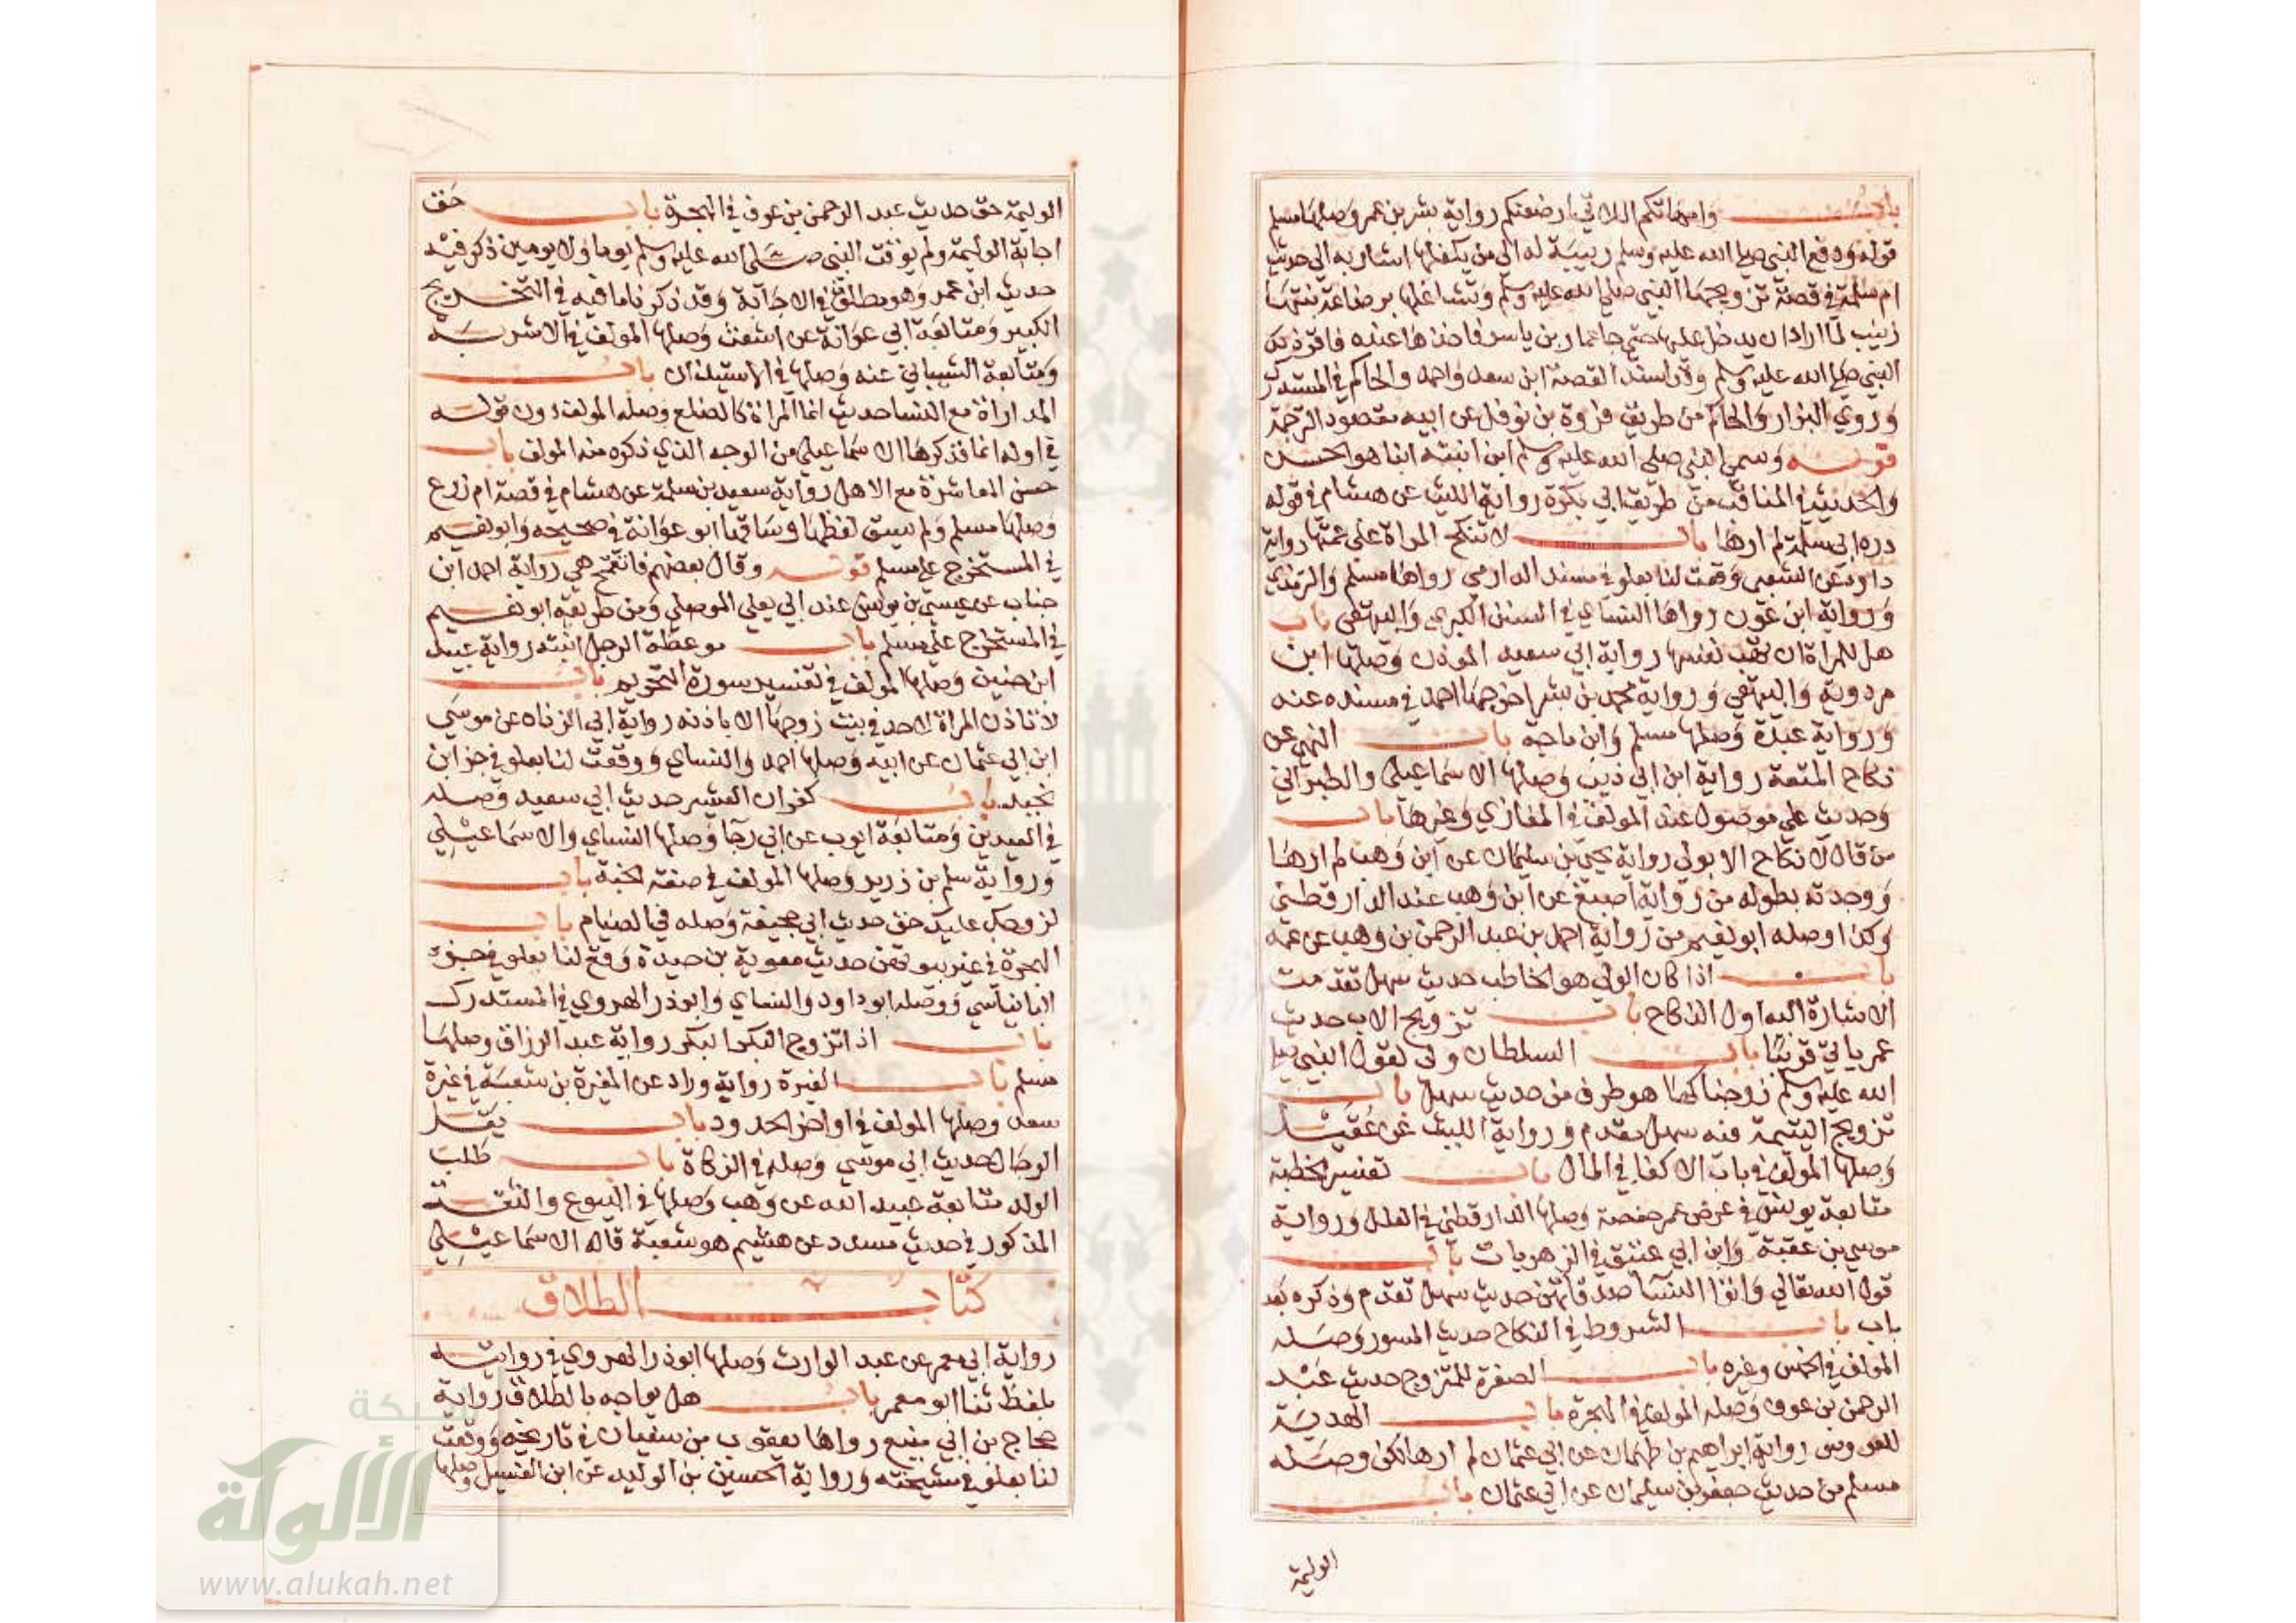 باب وامهاتكم اللاتي ارضعنكم رواية بشر بن عمر وصلها مسلم
قوله ودفع النبي صلى الله عليه وسلم ربيبة له الى من يكفلها اشار به الى حديث
ام سلمة في قصة تزويجها النبي صلى الله عليه وسلم وتشاغلها برضاعة بنتها
زينب لما اراد ان يدخل عليها حتى جا عمار بن ياسر فاخذها عنده فاقر ذلك
النبي صلى الله عليه وسلم وقد اسند القصة ابن سعد واحمد والحاكم في المستدرك
وروي البزار والحاكم من طريق فروة بن نوفل عن ابيه مقصود الترجمة
قوله وسمى النبي صلى الله عليه وسلم ابن ابنته ابنا هو الحسن
والحديث في المناقب من طريق ابي بكرة رواية الليث عن هشام في قوله
درة ابي سلمة لم ارها باب لا تنكح المراة على عمتها رواية
داود عن الشعبي وقعت لنا بعلو في مسند الدارمي رواها مسلم والترمذي
ورواية ابن عون رواها النساي في السنن الكبري والبيهقي باب
هل للمراة ان تهب نفسها رواية ابي سعيد المودب وصلها ابن
مردوية والبيهقي ورواية محمد بن بشر اخرجها احمد في مسنده عنه
ورواية عبدة وصلها مسلم وابن ماجة باب النهي عن
نكاح المتعة رواية ابن ابي ذيب وصلها الاسماعيلي والطبراني
وحديث علي موصول عند المولف في المغازي وغيرها باب
من قال لا نكاح الا بولي رواية يحيى بن سليمان عن ابن وهب لم ارها
ووجدته بطوله من رواية اصبغ عن ابن وهب عند الدارقطني
وكذا وصله ابو نعيم من رواية احمد بن عبد الرحمن بن وهب عن عمه
باب اذا كان الولي هو الخاطب حديث سهل تقدمت
الاشارة اليه اول النكاح باب تزويج الاب حديث
عمر ياتي قريبا باب السلطان ولي لقول النبي صلى
الله عليه وسلم زوجناكها هو طرف من حديث سهل باب
تزويج اليتيمة فيه سهل مقدم ورواية الليث عن عقيل
وصلها المولف في باب الاكفا في المال باب تفسير الخطبة
متابعة يونس في عرض عمر حفصة وصلها الدارقطني في العلل ورواية
موسى بن عقبة وابن ابي عتيق في الزهريات باب
قول الله تعالى واتوا النسا صدقاتهن حديث سهل تقدم وذكره بعد
باب باب الشروط في النكاح حديث المسور وصله
المولف في الخمس وغيره باب الصفرة للمتزوج حديث عبد
الرحمن بن عوف وصله المولف في الهجرة باب الهدية
للعروس رواية ابراهيم بن طهمان عن ابي عثمان لم ارها لكن وصله
مسلم من حديث جعفر بن سليمان عن ابي عثمان باب
الوليمة
الوليمة حق حديث عبد الرحمن بن عوف في الهجرة باب حق
اجابة الوليمة ولم يوقت النبي صلى الله عليه وسلم يوما ولا يومين ذكر فيه
حديث ابن عمر وهو مطلق في الاجابة وقد ذكرنا ما فيه في التخريج
الكبير ومتابعة ابي عوانة عن اشعث وصلها المولف في الاشربة
ومتابعة الشيباني عنه وصلها في الاستيذان باب
المداراة مع النسا حديث انما المراة كالضلع وصله المولف دون قوله
في اوله انما فذكرها الاسماعيلي من الوجه الذي ذكره منه المولف باب
حسن المعاشرة مع الاهل رواية سعيد بن سلمة عن هشام في قصة ام زرع
وصلها مسلم ولم يسق لفظها وساقها ابو عوانة في صحيحه وابو نعيم
في المستخرج على مسلم قوله وقال بعضهم فاتقمح هي رواية احمد ابن
جناب عن عيسى بن يونس عند ابي يعلي الموصلي ومن طريقه ابو نعيم
في المستخرج على مسلم باب موعظة الرجل ابنته رواية عبيد
ابن حنين وصلها المولف في تفسير سورة التحريم باب
لا تاذن المراة لاحد في بيت زوجها الا باذنه رواية ابي الزناد عن موسى
ابن ابي عثمان عن ابيه وصلها احمد والنساي ووقعت لنا بعلو في جز ابن
نجيد باب كفران العشير حديث ابي سعيد وصله
في العيدين ومتابعة ايوب عن ابي رجا وصلها النساي والاسماعيلي
ورواية سلم بن زرير وصلها المولف في صفة الجنة باب
لزوجك عليك حق حديث ابي جحيفة وصله في الصيام باب
الهجرة في غير بيوتهن حديث معوية بن حيدة وقع لنا بعلو في جزء
البانياسي ووصله ابو داود والنساي وابو ذر الهروي في المستدرك
باب اذا تزوج البكر البكر رواية عبد الرزاق وصلها
مسلم باب الغيرة رواية وراد عن المغيرة بن شعبة في غيرة
سعد وصلها المولف في اواخر الحدود باب يقل
الرجال حديث ابي موسى وصله في الزكاة باب طلب
الولد متابعة عبيد الله عن وهب وصلها في البيوع والثقة
المذكور في حديث مسدد عن هشيم هو شعبة قاله الاسماعيلي
كتاب الطلاق
رواية ابي معمر عن عبد الوارث وصلها ابو ذر الهروي في روايته
بلفظ ثنا ابو معمر باب هل يواجه بالطلاق رواية
حجاج بن ابي منيع رواها يعقوب بن سفيان في تاريخه ووقعت
لنا بعلو في مشيخته ورواية الحسين بن الوليد عن ابن الغسيل وصلها
شبكة
الألوكة
www.alukah.net